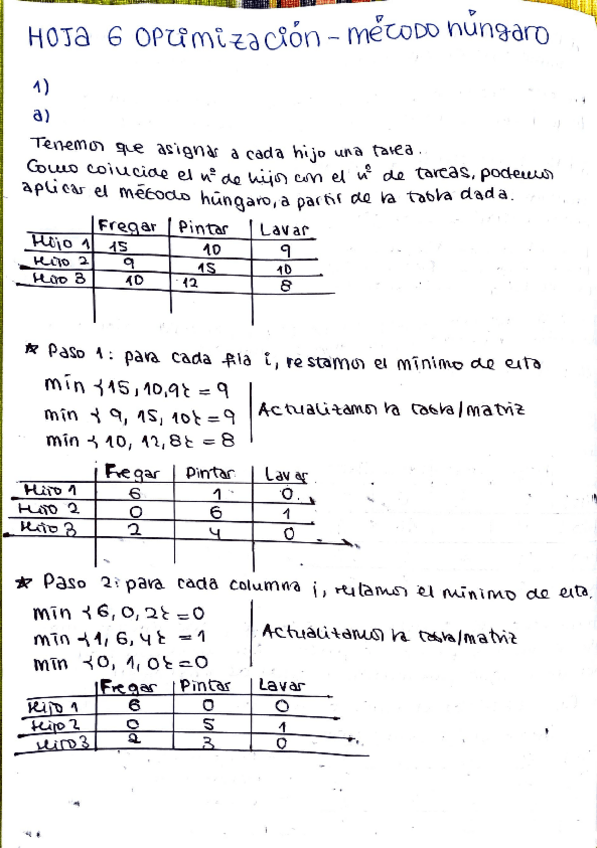 HOJA 6 Optimización - método húngaro
1)
a)
Tenemos que asignar a cada hijo una tarea.
Como coincide el nº de hijos con el nº de tareas, podemos
aplicar el método húngaro, a partir de la tabla dada.
Fregar Pintar Lavar
Hijo 1 15 10 9
Hijo 2 9 15 10
Hijo 3 10 12 8
* Paso 1: para cada fila i, restamos el mínimo de esta
mín {15, 10, 9} = 9
mín {9, 15, 10} = 9
mín {10, 12, 8} = 8
Actualizamos la tabla/matriz
Fregar Pintar Lavar
Hijo 1 6 1 0
Hijo 2 0 6 1
Hijo 3 2 4 0
* Paso 2: para cada columna i, restamos el mínimo de esta.
mín {6, 0, 2} = 0
mín {1, 6, 4} = 1
mín {0, 1, 0} = 0
Actualizamos la tabla/matriz
Fregar Pintar Lavar
Hijo 1 6 0 0
Hijo 2 0 5 1
Hijo 3 2 3 0